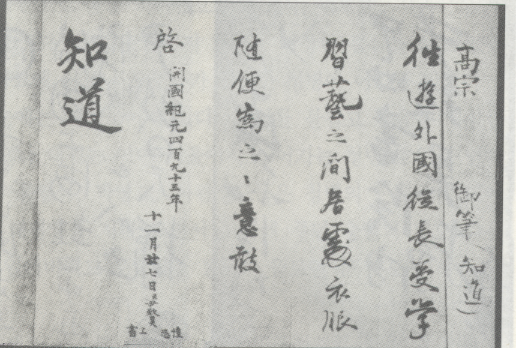 高宗 御筆(知道)
往遊外國從長受学
習藝之間居處衣服
随便為之之意敢
啓
開國紀元四百九十三年
十一月廿七日
知道